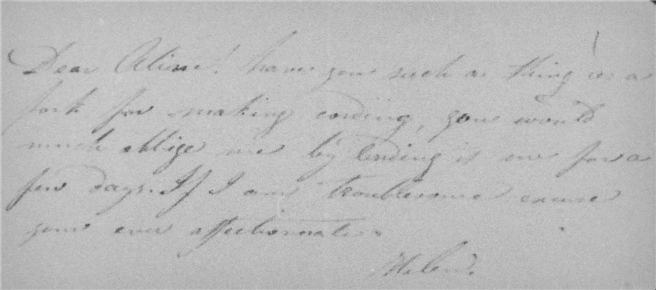 Dear Aline! have you such a thing as a
fork for making cording, you would
much oblige me by lending it me for a
few days. If I am troublesome excuse
your ever affectionate
Helen.